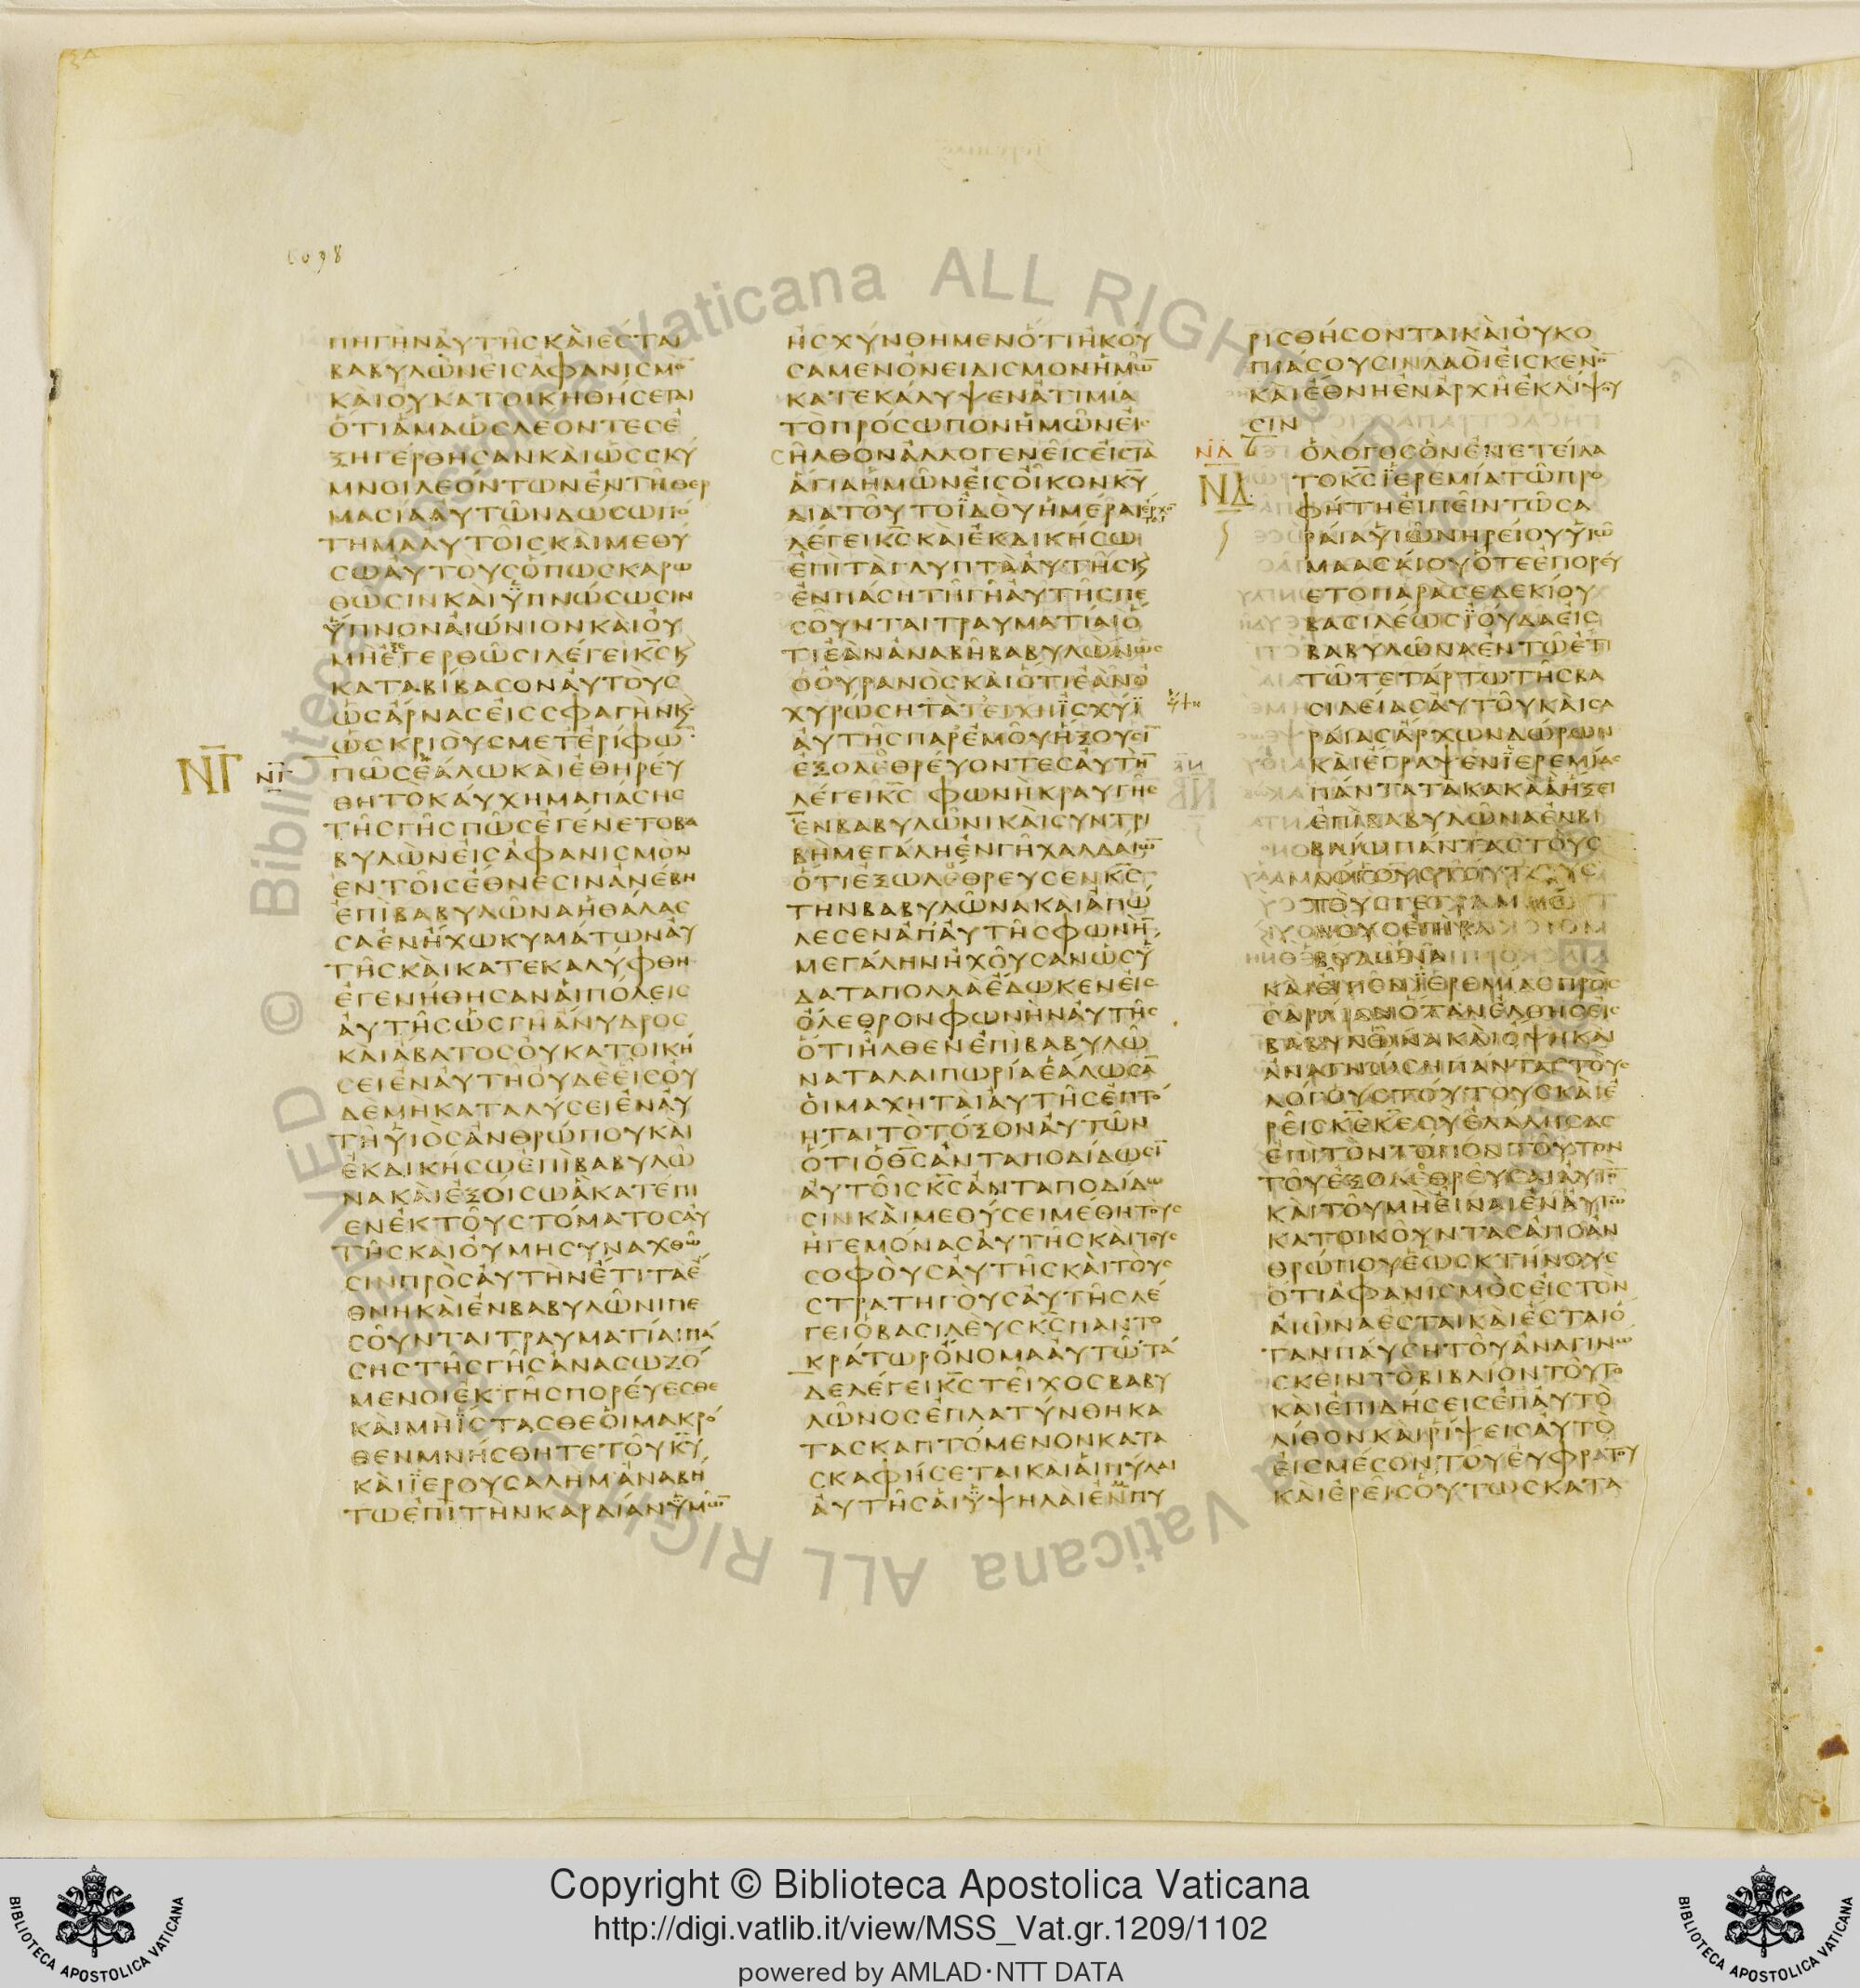 1098
ΠΗΓΗΝΑΥΤΗϹΚΑΙΕϹΤΑΙ
ΒΑΒΥΛΩΝΕΙϹΑΦΑΝΙϹΜΟ̄
ΚΑΙΟΥΚΑΤΟΙΚΗΘΗϹΕΤΑΙ
ΟΤΙΑΜΑΩϹΛΕΟΝΤΕϹΕ
ΞΗΓΕΡΘΗϹΑΝΚΑΙΩϹϹΚΥ
ΜΝΟΙΛΕΟΝΤΩΝΕΝΤΗΘΕΡ
ΜΑϹΙΑΑΥΤΩΝΔΩϹΩΠΟ
ΤΗΜΑΑΥΤΟΙϹΚΑΙΜΕΘΥ
ϹΩΑΥΤΟΥϹΟΠΩϹΚΑΡΩ
ΘΩϹΙΝΚΑΙΫΠΝΩϹΩϹΙΝ
ΫΠΝΟΝΑΙΩΝΙΟΝΚΑΙΟΥ
ΜΗΕΓΕΡΘΩϹΙΛΕΓΕΙΚ̄Ϲ̄Κ
ΚΑΤΑΒΙΒΑϹΟΝΑΥΤΟΥϹ
ΩϹΑΡΝΑϹΕΙϹϹΦΑΓΗΝΚ
ΩϹΚΡΙΟΥϹΜΕΤΕΡΙΦΩ̄
Ν̄Γ̄ Ν̄Γ̄ ΠΩϹΕΑΛΩΚΑΙΕΘΗΡΕΥ
ΘΗΤΟΚΑΥΧΗΜΑΠΑϹΗϹ
ΤΗϹΓΗϹΠΩϹΕΓΕΝΕΤΟΒΑ
ΒΥΛΩΝΕΙϹΑΦΑΝΙϹΜΟΝ
ΕΝΤΟΙϹΕΘΝΕϹΙΝΑΝΕΒΗ
ΕΠΙΒΑΒΥΛΩΝΑΗΘΑΛΑϹ
ϹΑΕΝΗΧΩΚΥΜΑΤΩΝΑΥ
ΤΗϹΚΑΙΚΑΤΕΚΑΛΥΦΘΗ
ΕΓΕΝΗΘΗϹΑΝΑΙΠΟΛΕΙϹ
ΑΥΤΗϹΩϹΓΗΑΝΥΔΡΟϹ
ΚΑΙΑΒΑΤΟϹΟΥΚΑΤΟΙΚΗ
ϹΕΙΕΝΑΥΤΗΟΥΔΕΕΙϹΟΥ
ΔΕΜΗΚΑΤΑΛΥϹΕΙΕΝΑΥ
ΤΗΫΙΟϹΑΝΘΡΩΠΟΥΚΑΙ
ΕΚΔΙΚΗϹΩΕΠΙΒΑΒΥΛΩ
ΝΑΚΑΙΕΞΟΙϹΩΑΚΑΤΕΠΙ
ΕΝΕΚΤΟΥϹΤΟΜΑΤΟϹΑΥ
ΤΗϹΚΑΙΟΥΜΗϹΥΝΑΧΘΩ
ϹΙΝΠΡΟϹΑΥΤΗΝΕΤΙΤΑΕ
ΘΝΗΚΑΙΕΝΒΑΒΥΛΩΝΙΠΕ
ϹΟΥΝΤΑΙΤΡΑΥΜΑΤΙΑΙΠΑ
ϹΗϹΤΗϹΓΗϹΑΝΑϹΩΖΟ
ΜΕΝΟΙΕΚΓΗϹΠΟΡΕΥΕϹΘΕ
ΚΑΙΜΗΪϹΤΑϹΘΕΟΙΜΑΚΡΟ
ΘΕΝΜΝΗϹΘΗΤΕΤΟΥΚ̄Ῡ
ΚΑΙΪΕΡΟΥϹΑΛΗΜΑΝΑΒΗ
ΤΩΕΠΙΤΗΝΚΑΡΔΙΑΝΫΜΩ̄
ΗϹΧΥΝΘΗΜΕΝΟΤΙΗΚΟΥ
ϹΑΜΕΝΟΝΕΙΔΙϹΜΟΝΗΜΩ̄
ΚΑΤΕΚΑΛΥΨΕΝΑΤΙΜΙΑ
ΤΟΠΡΟϹΩΠΟΝΗΜΩΝΕΙ
ϹΗΛΘΟΝΑΛΛΟΓΕΝΕΙϹΕΙϹΤΑ
ΑΓΙΑΗΜΩΝΕΙϹΟΙΚΟΝΚ̄Ῡ
ΔΙΑΤΟΥΤΟΪΔΟΥΗΜΕΡΑΙΕΡΧΟ̄ΤΑΙ
ΛΕΓΕΙΚ̄Ϲ̄ΚΑΙΕΚΔΙΚΗϹΩ
ΕΠΙΤΑΓΛΥΠΤΑΑΥΤΗϹΚ
ΕΝΠΑϹΗΤΗΓΗΑΥΤΗϹΠΕ
ϹΟΥΝΤΑΙΤΡΑΥΜΑΤΙΑΙΟ
ΤΙΕΑΝΑΝΑΒΗΒΑΒΥΛΩΝΩϹ
ΟΟΥΡΑΝΟϹΚΑΙΟΤΙΕΑΝΟ
ΧΥΡΩϹΗΤΑΤΕΙΧΗΪϹΧΥΪ
ΑΥΤΗϹΠΑΡΕΜΟΥΗΞΟΥϹῙ
ΕΞΟΛΕΘΡΕΥΟΝΤΕϹΑΥΤΗ̄
ΛΕΓΕΙΚ̄Ϲ̄ ΦΩΝΗΚΡΑΥΓΗϹ
ΕΝΒΑΒΥΛΩΝΙΚΑΙϹΥΝΤΡΙ
ΒΗΜΕΓΑΛΗΕΝΓΗΧΑΛΔΑΙΩ̄
ΟΤΙΕΞΩΛΕΘΡΕΥϹΕΝΚ̄Ϲ̄
ΤΗΝΒΑΒΥΛΩΝΑΚΑΙΑΠΩ
ΛΕϹΕΝΑΠΑΥΤΗϹΦΩΝΗ̄
ΜΕΓΑΛΗΝΗΧΟΥϹΑΝΩϹΫ
ΔΑΤΑΠΟΛΛΑΕΔΩΚΕΝΕΙϹ
ΟΛΕΘΡΟΝΦΩΝΗΝΑΥΤΗϹ
ΟΤΙΗΛΘΕΝΕΠΙΒΑΒΥΛΩ
ΝΑΤΑΛΑΙΠΩΡΙΑΕΑΛΩϹᾹ
ΟΙΜΑΧΗΤΑΙΑΥΤΗϹΕΠΤΟ
ΗΤΑΙΤΟΤΟΞΟΝΑΥΤΩΝ
ΟΤΙΟΘ̄Ϲ̄ΑΝΤΑΠΟΔΙΔΩϹῙ
ΑΥΤΟΙϹΚ̄Ϲ̄ΑΝΤΑΠΟΔΙΔΩ
ϹΙΝΚΑΙΜΕΘΥϹΕΙΜΕΘΗΤΟΥϹ
ΗΓΕΜΟΝΑϹΑΥΤΗϹΚΑΙΤΟΥϹ
ϹΟΦΟΥϹΑΥΤΗϹΚΑΙΤΟΥϹ
ϹΤΡΑΤΗΓΟΥϹΑΥΤΗϹΛΕ
ΓΕΙΟΒΑϹΙΛΕΥϹΚ̄Ϲ̄ΠΑΝΤΟ
ΚΡΑΤΩΡΟΝΟΜΑΑΥΤΩΤΑ
ΔΕΛΕΓΕΙΚ̄Ϲ̄ΤΕΙΧΟϹΒΑΒΥ
ΛΩΝΟϹΕΠΛΑΤΥΝΘΗΚΑ
ΤΑϹΚΑΠΤΟΜΕΝΟΝΚΑΤΑ
ϹΚΑΦΗϹΕΤΑΙΚΑΙΑΙΠΥΛΑΙ
ΑΥΤΗϹΑΙΫΨΗΛΑΙΕΝΠΥ
ΡΙϹΘΗϹΟΝΤΑΙΚΑΙΟΥΚΟ
ΠΙΑϹΟΥϹΙΝΛΑΟΙΕΙϹΚΕΝΟ̄
ΚΑΙΕΘΝΗΕΝΑΡΧΗΕΚΛΙΨΟΥ
ϹΙΝ
Ν̄Δ̄ ΟΛΟΓΟϹΟΝΕΝΕΤΕΙΛΑ
Ν̄Δ̄ ΤΟΚ̄Ϲ̄ΪΕΡΕΜΙΑΤΩΠΡΟ
ΦΗΤΗΕΙΠΕΙΝΤΩϹΑ
ΡΑΙΑΫΙΩΝΗΡΕΙΟΥΫΙΟΥ
ΜΑΑϹΑΙΟΥΟΤΕΕΠΟΡΕΥ
ΕΤΟΠΑΡΑϹΕΔΕΚΙΟΥ
ΒΑϹΙΛΕΩϹΪΟΥΔΑΕΙϹ
ΒΑΒΥΛΩΝΑΕΝΤΩΕΤΙ
ΤΩΤΕΤΑΡΤΩΤΗϹΒΑ
ϹΙΛΕΙΑϹΑΥΤΟΥΚΑΙϹΑ
ΡΑΙΑϹΑΡΧΩΝΔΩΡΩΝ
ΚΑΙΕΓΡΑΨΕΝΪΕΡΕΜΙΑϹ
ΠΑΝΤΑΤΑΚΑΚΑΑΗΞΕΙ
ΕΠΙΒΑΒΥΛΩΝΑΕΝΒΙ
ΒΛΙΩΠΑΝΤΑϹΤΟΥϹ
ΛΟΓΟΥϹΤΟΥΤΟΥϹ
ΤΟΥϹΓΕΓΡΑΜΜΕ
ΝΟΥϹΕΠΙΒΑ
ΒΥΛΩΝΑ
ΚΑΙΕΙΠΕΝΪΕΡΕΜΙΑϹΠΡΟϹ
ϹΑΡΑΙΑΝΟΤΑΝΕΛΘΗϹΕΙϹ
ΒΑΒΥΛΩΝΑΚΑΙΟΨΗΚΑΙ
ΑΝΑΓΝΩϹΗΠΑΝΤΑϹΤΟΥϹ
ΛΟΓΟΥϹΤΟΥΤΟΥϹΚΑΙΕ
ΡΕΙϹΚ̄Ε̄Κ̄Ε̄ϹΥΕΛΑΛΗϹΑϹ
ΕΠΙΤΟΝΤΟΠΟΝΤΟΥΤΟΝ
ΤΟΥΕΞΟΛΕΘΡΕΥϹΑΙΑΥΤΟ̄
ΚΑΙΤΟΥΜΗΕΙΝΑΙΕΝΑΥΤΩ
ΚΑΤΟΙΚΟΥΝΤΑϹΑΠΟΑΝ
ΘΡΩΠΟΥΕΩϹΚΤΗΝΟΥϹ
ΟΤΙΑΦΑΝΙϹΜΟϹΕΙϹΤΟΝ
ΑΙΩΝΑΕϹΤΑΙΚΑΙΕϹΤΑΙΟ
ΤΑΝΠΑΥϹΗΤΟΥΑΝΑΓΙΝΩ
ϹΚΕΙΝΤΟΒΙΒΛΙΟΝΤΟΥΤΟ
ΚΑΙΕΠΙΔΗϹΕΙϹΕΠΑΥΤΟ
ΛΙΘΟΝΚΑΙΡΙΨΕΙϹΑΥΤΟ
ΕΙϹΜΕϹΟΝΤΟΥΕΥΦΡΑΤΟΥ
ΚΑΙΕΡΕΙϹΟΥΤΩϹΚΑΤΑ
© Biblioteca Apostolica Vaticana ALL RIGHTS RESERVED
Copyright © Biblioteca Apostolica Vaticana
http://digi.vatlib.it/view/MSS_Vat.gr.1209/1102
powered by AMLAD·NTT DATA
BIBLIOTECA APOSTOLICA VATICANA
BIBLIOTECA APOSTOLICA VATICANA